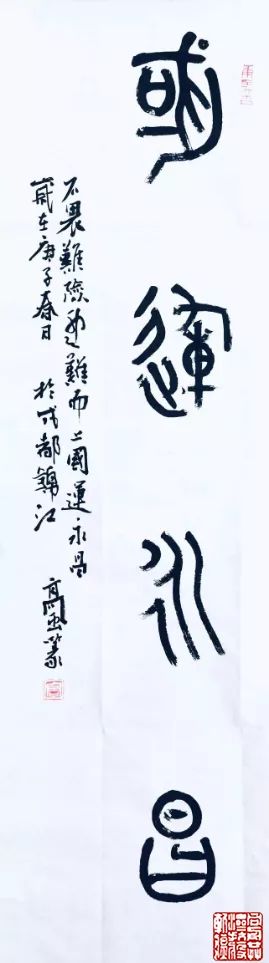 國運永昌
不畏難險迎難而上國運永昌
歲在庚子春日於成都錦江
高風篆